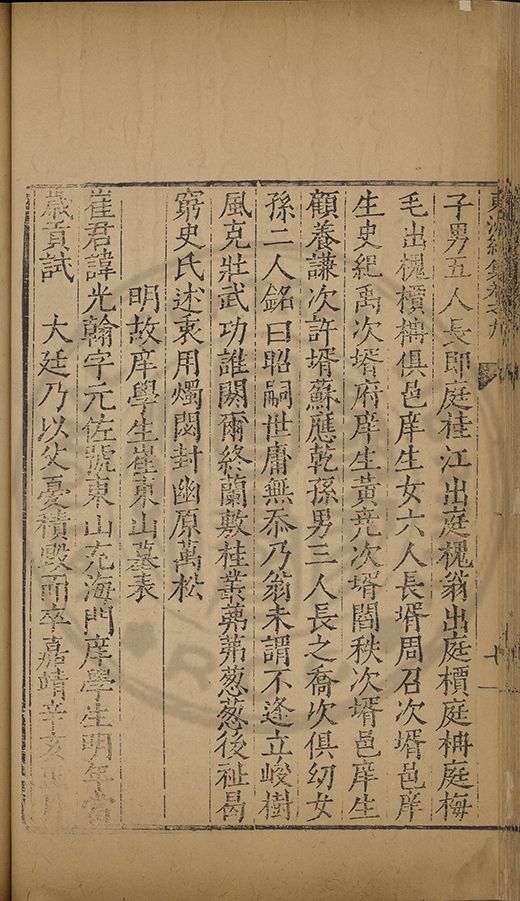 子男五人長即庭桂江出庭槐翁出庭檟庭柟庭梅
毛出槐檟柟俱邑庠生女六人長壻周召次壻邑庠
生史紀禹次壻府庠生黃堯次壻閻秩次壻邑庠生
顧養謙次許壻蘇應乾孫男三人長之喬次俱幼女
孫二人銘曰昭嗣世庸無忝乃翁未謂不逢立峻樹
風克壯武功誰闕爾終蘭敷桂叢茀茀葱葱後祉曷
窮史氏述衷用燭閟封幽原萬松
明故庠學生崔東山墓表
崔君諱光翰字元佐號東山充海門庠學生明年當
歲貢試 大廷乃以父憂積毀而卒嘉靖辛亥